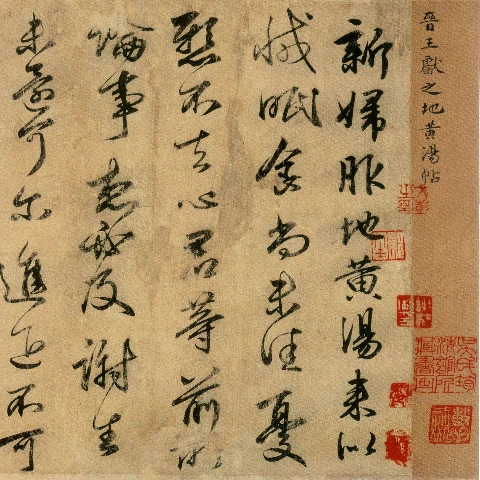 晉王獻之地黃湯帖
新婦服地黃湯來似
減眠食尚未佳憂
懸不去心君等前所
論事想必及謝生
未還可尔進退不可